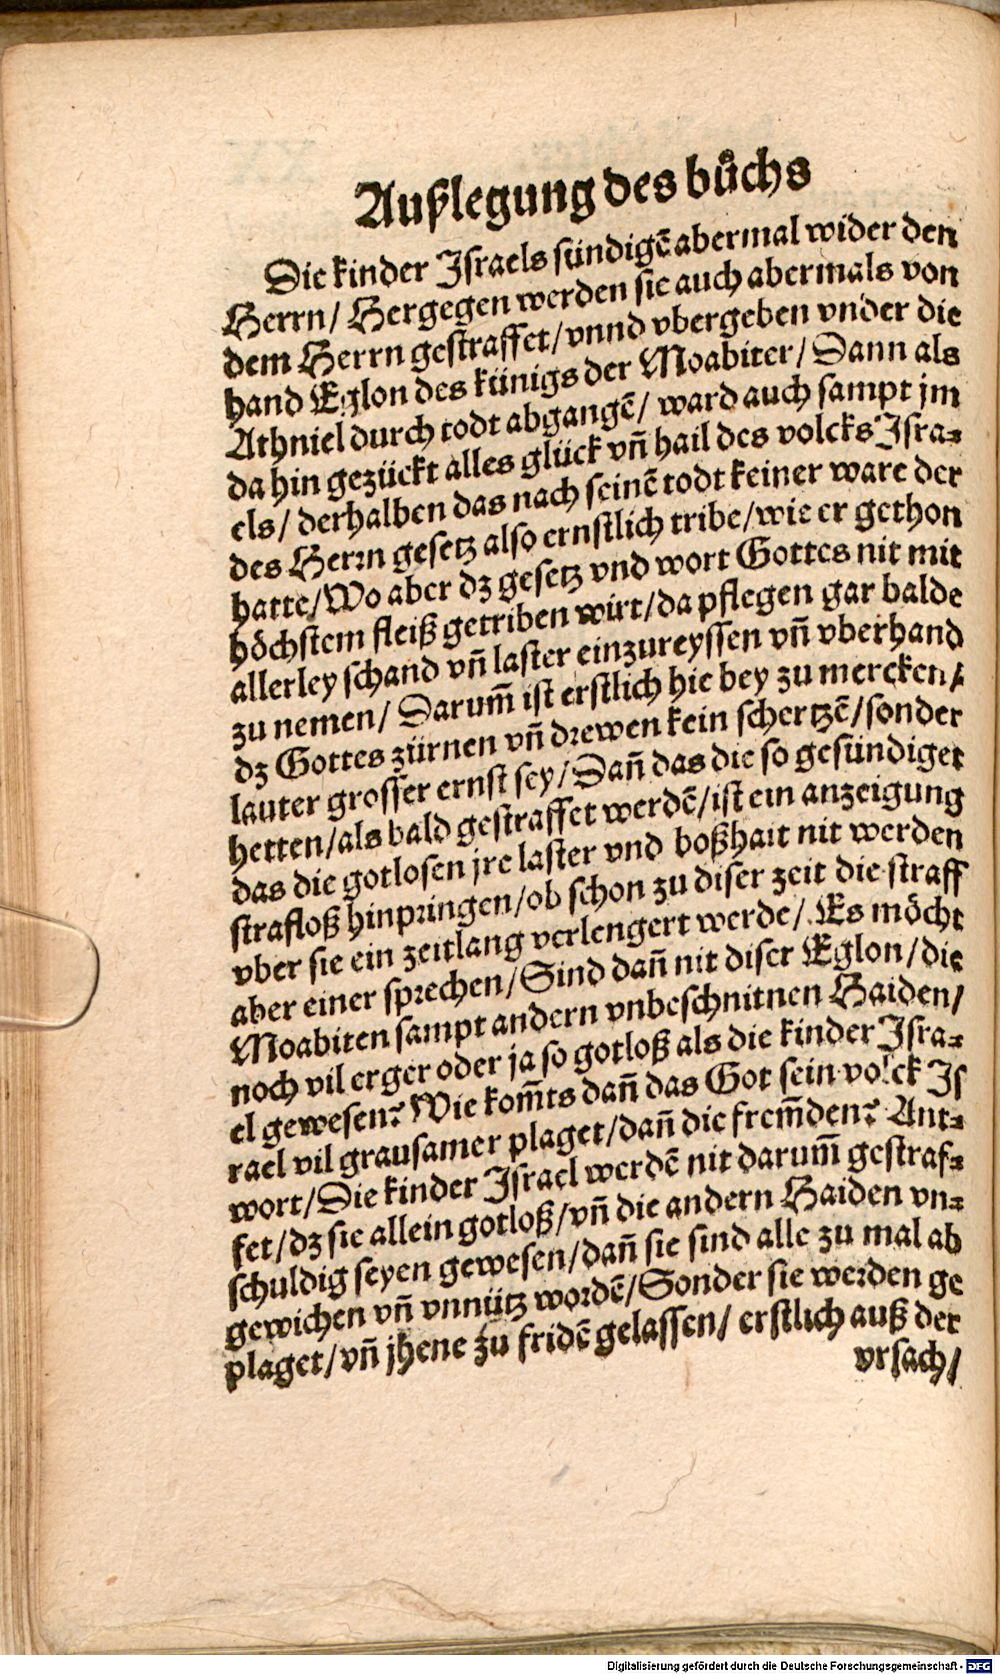 Außlegung des bůchs
Die kinder Israels sündigẽ abermal wider den
Herrn/ Hergegen werden sie auch abermals von
dem Herrn gestraffet/ vnnd vbergeben vnder die
hand Eglon des künigs der Moabiter/ Dann als
Athniel durch todt abgangẽ/ ward auch sampt jm
da hin gezückt alles glück vñ hail des volcks Isra-
els/ derhalben das nach seinẽ todt keiner ware der
des Herrn gesetz also ernstlich tribe/ wie er gethon
hatte/ Wo aber dz gesetz vnd wort Gottes nit mit
höchstem fleiß getriben wirt/ da pflegen gar balde
allerley schand vñ laster einzureyssen vñ vberhand
zu nemen/ Darum̃ ist erstlich hie bey zu mercken/
dz Gottes zürnen vñ drewen kein schertzẽ/ sonder
lauter grosser ernst sey/ Dañ das die so gesündiget
hetten/ als bald gestraffet werdẽ/ ist ein anzeigung
das die gotlosen jre laster vnd boßhait nit werden
strafloß hinpringen/ ob schon zu diser zeit die straff
vber sie ein zeitlang verlengert werde/ Es möcht
aber einer sprechen/ Sind dañ nit diser Eglon/ die
Moabiten sampt andern vnbeschnitnen Haiden/
noch vil erger oder ja so gotloß als die kinder Isra-
el gewesen? Wie kom̃ts dañ das Got sein volck Is
rael vil grausamer plaget/ dañ die frem̃den? Ant-
wort/ Die kinder Israel werdẽ nit darum̃ gestraf-
fet/ dz sie allein gotloß/ vñ die andern Haiden vn-
schuldig seyen gewesen/ dañ sie sind alle zu mal ab
gewichen vñ vnnütz wordẽ/ Sonder sie werden ge
plaget/ vñ jhene zu fridẽ gelassen/ erstlich auß der
vrsach/
Digitalisierung gefördert durch die Deutsche Forschungsgemeinschaft - DFG